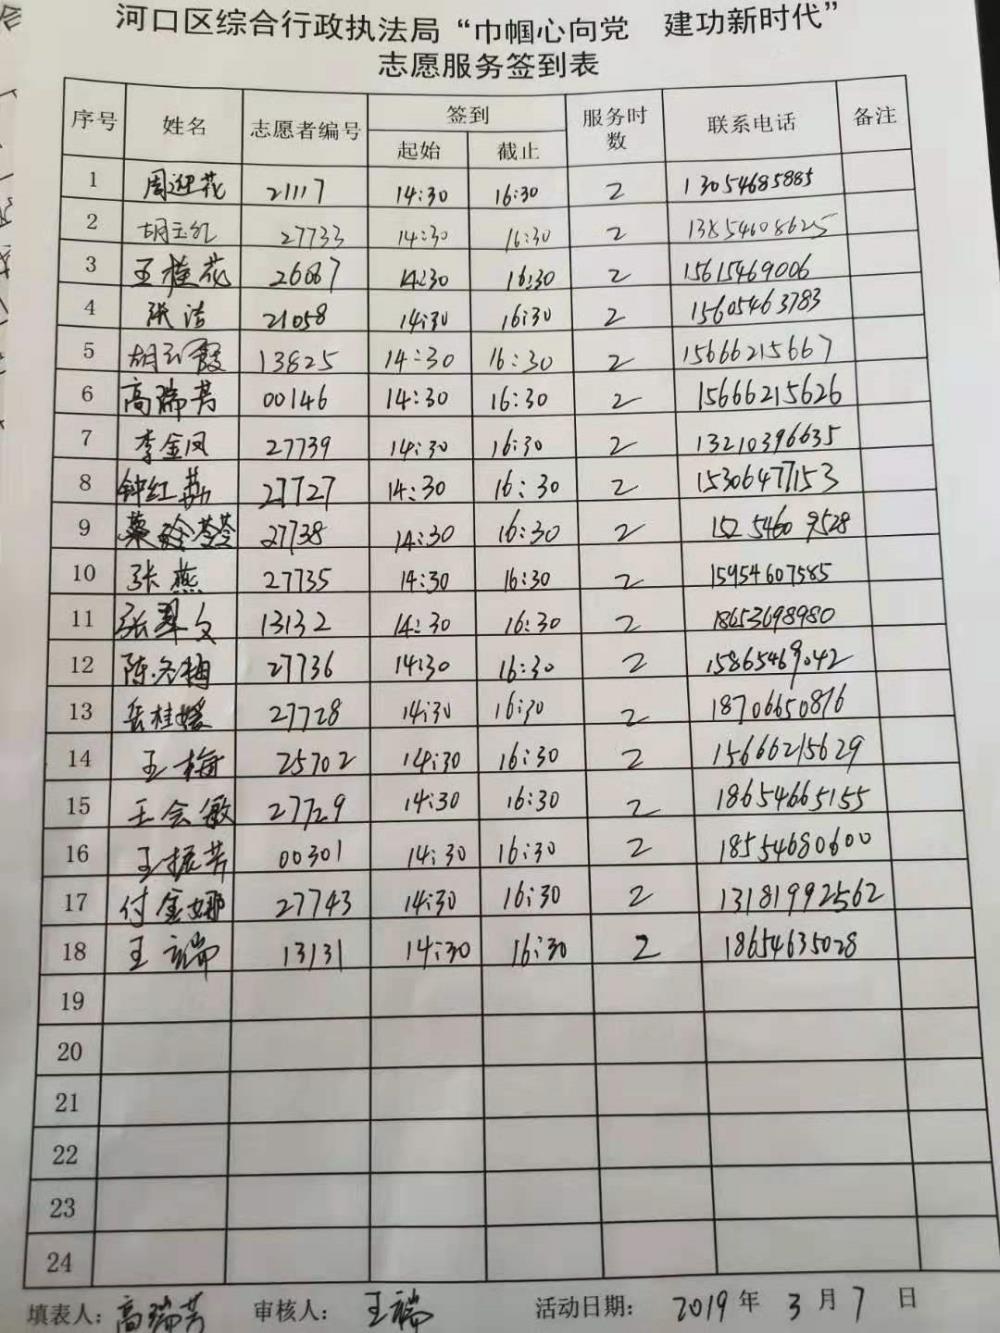 河口区综合行政执法局“巾帼心向党 建功新时代”
志愿服务签到表
序号 姓名 志愿者编号 签到 服务时数 联系电话 备注
起始 截止
1 周迎花 21117 14:30 16:30 2 13054685885
2 胡玉红 27733 14:30 16:30 2 13854608625
3 王桂花 26687 14:30 16:30 2 15615469006
4 张洁 21058 14:30 16:30 2 15605463783
5 胡云霞 13825 14:30 16:30 2 15666215667
6 高瑞芳 00146 14:30 16:30 2 15666215626
7 李金凤 27739 14:30 16:30 2 13210396635
8 钟红荔 27727 14:30 16:30 2 15306477153
9 27738 14:30 16:30 2 152 5460 9528
10 张燕 27735 14:30 16:30 2 15954607585
11 张翠文 13132 14:30 16:30 2 18653698980
12 陈冬梅 27736 14:30 16:30 2 15865469042
13 岳桂媛 27728 14:30 16:30 2 18706650876
14 王梅 25702 14:30 16:30 2 15666215629
15 王会敏 27729 14:30 16:30 2 18654665155
16 王振芳 00301 14:30 16:30 2 18554680600
17 付金娜 27743 14:30 16:30 2 13181992562
18 王瑞 13131 14:30 16:30 2 18654635028
19
20
21
22
23
24
填表人：高瑞芳 审核人：王瑞 活动日期： 2019 年 3 月 7 日